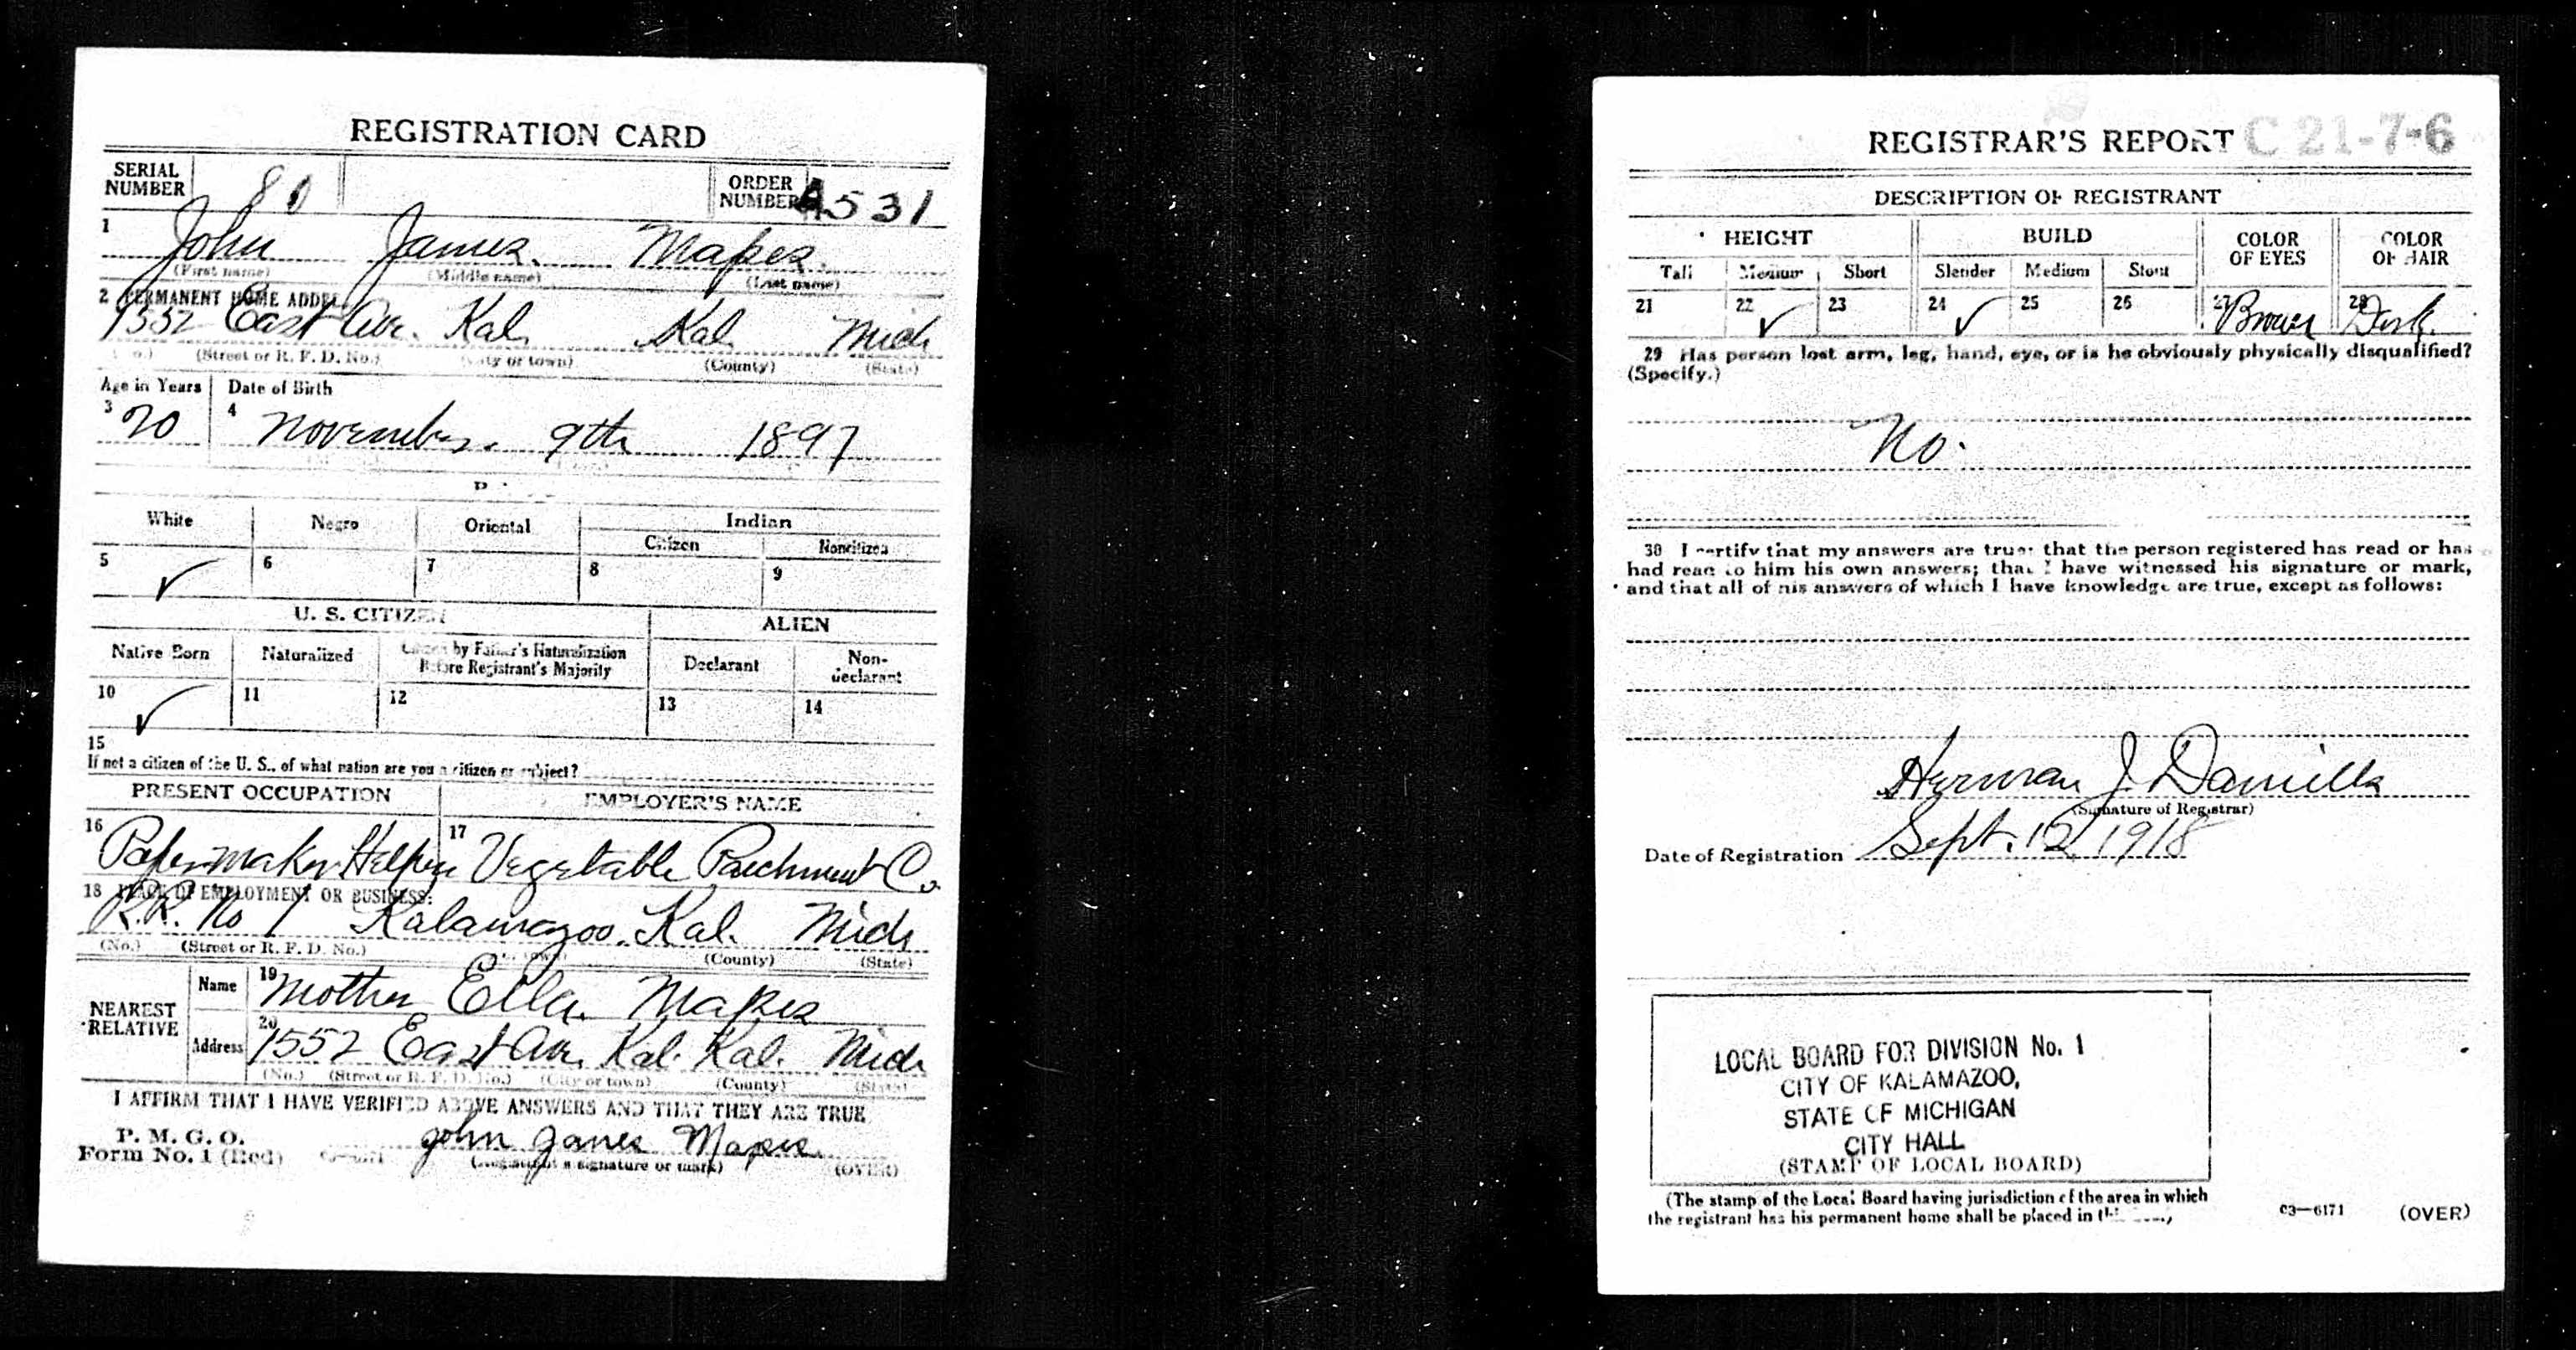 REGISTRATION CARD
SERIAL NUMBER
ORDER NUMBER 531
1 John James Mapes
(First name) (Middle name) (Last name)
2 PERMANENT HOME ADDRE
1552 East Av. Kal. Kal. Mich
(Street or R. F. D. No.) (City or town) (County) (State)
Age in Years Date of Birth
3 20 4 November. 9th 1897
White Negro Oriental Indian
Citizen Noncitizen
5 ✓ 6 7 8 9
U. S. CITIZEN ALIEN
Native Born Naturalized Citizen by Father's Naturalization Before Registrant's Majority Declarant Non-declarant
10 ✓ 11 12 13 14
15
If not a citizen of the U. S., of what nation are you a citizen or subject?
PRESENT OCCUPATION EMPLOYER'S NAME
16 Papermaker Helper 17 Vegetable Parchment Co.
18 PLACE OF EMPLOYMENT OR BUSINESS:
R.R. No 1 Kalamazoo. Kal. Mich
(No.) (Street or R. F. D. No.) (County) (State)
NEAREST RELATIVE
Name 19 Mother Ella. Mapes
Address 20 1552 East Av. Kal. Kal. Mich
(No.) (Street or R. F. D. No.) (City or town) (County) (State)
I AFFIRM THAT I HAVE VERIFIED ABOVE ANSWERS AND THAT THEY ARE TRUE
P. M. G. O.
Form No. 1 (Red) John James Mapes
(Registrant's signature or mark) (OVER)
REGISTRAR'S REPORT C 21-7-6
DESCRIPTION OF REGISTRANT
HEIGHT BUILD COLOR OF EYES COLOR OF HAIR
Tall Medium Short Slender Medium Stout
21 22 ✓ 23 24 ✓ 25 26 27 Brown 28 Dark.
29 Has person lost arm, leg, hand, eye, or is he obviously physically disqualified?
(Specify.)
No.
30 I certify that my answers are true; that the person registered has read or has
had read to him his own answers; that I have witnessed his signature or mark,
and that all of his answers of which I have knowledge are true, except as follows:
Herman J. Daniells
(Signature of Registrar)
Date of Registration Sept. 12, 1918
LOCAL BOARD FOR DIVISION No. 1
CITY OF KALAMAZOO,
STATE OF MICHIGAN
CITY HALL
(STAMP OF LOCAL BOARD)
(The stamp of the Local Board having jurisdiction of the area in which
the registrant has his permanent home shall be placed in
03—6171 (OVER)